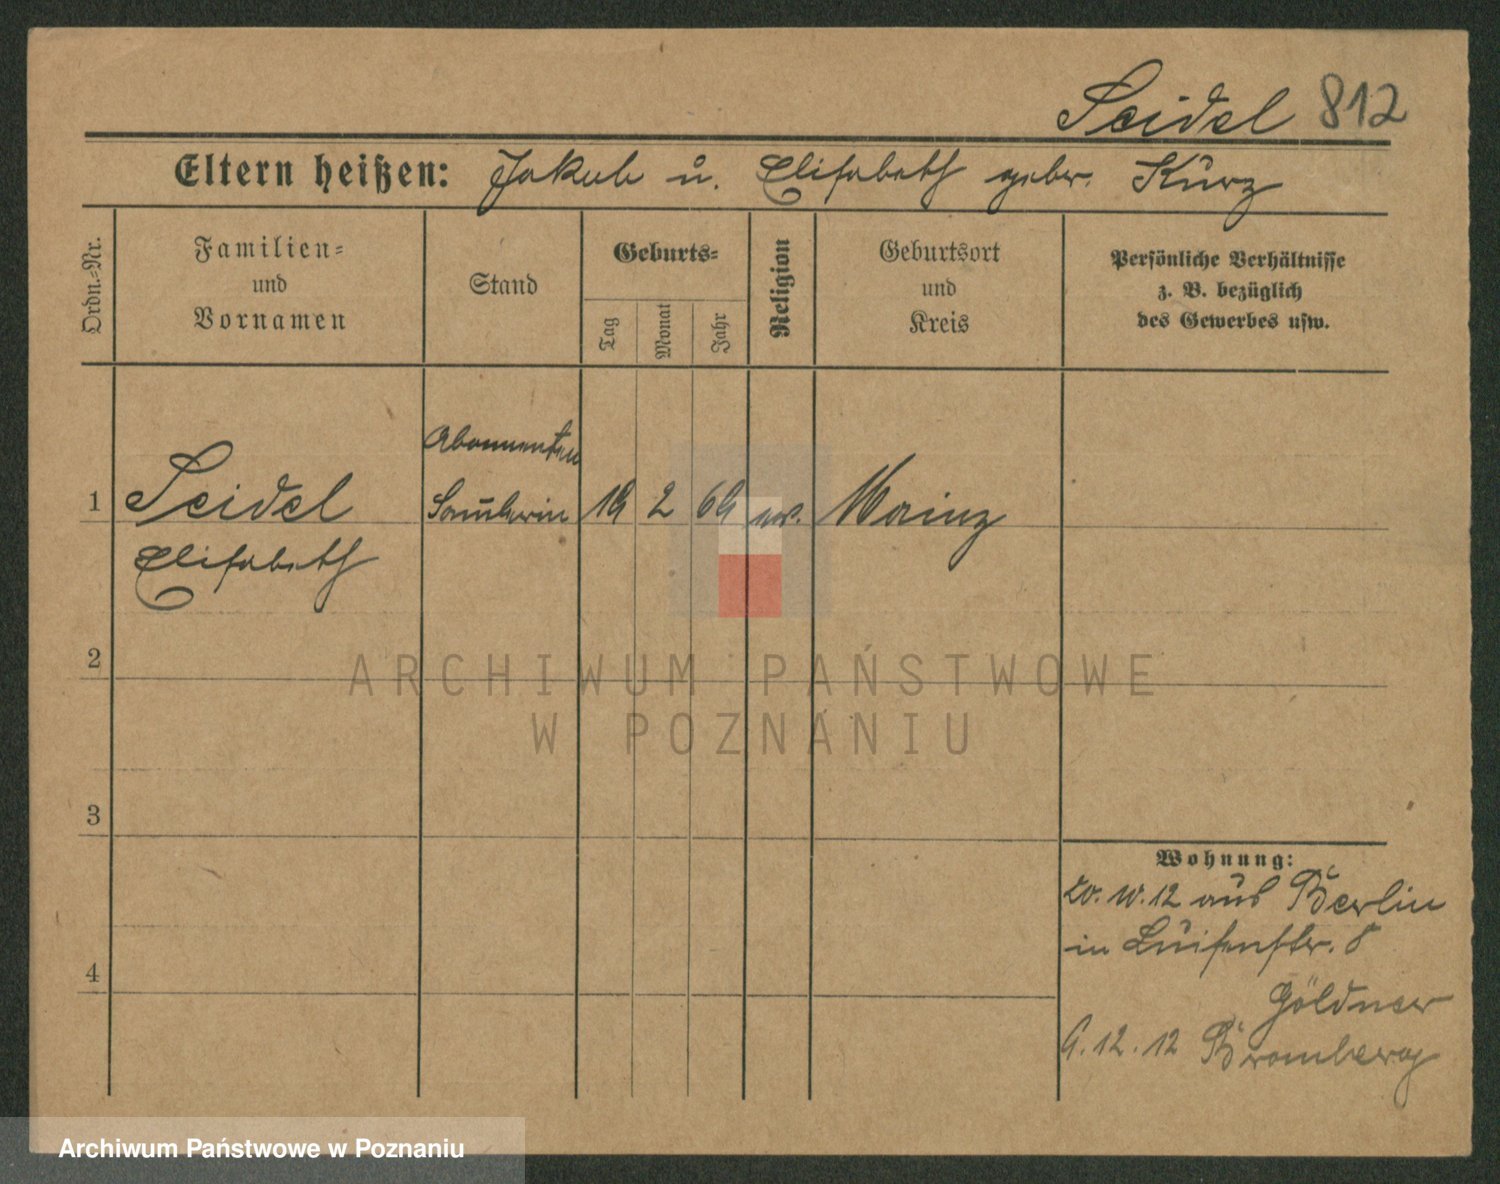 Seidel 812
Eltern heißen: Jakob u. Elisabeth gebor. Kurz
Ordn.-Nr.
Familien-
und
Vornamen
Stand
Geburts-
Tag
Monat
Jahr
Religion
Geburtsort
und
Kreis
Persönliche Verhältnisse
z. B. bezüglich
des Gewerbes usw.
Abonnenten
1 Seidel Samlerin 19 2 69 ev. Mainz
Elisabeth
2
ARCHIWUM PAŃSTWOWE
W POZNANIU
3
Wohnung:
20. 10. 12 aus Berlin
in Luisenstr. 8
4
Göldner
9. 12. 12 Bromberg
Archiwum Państwowe w Poznaniu